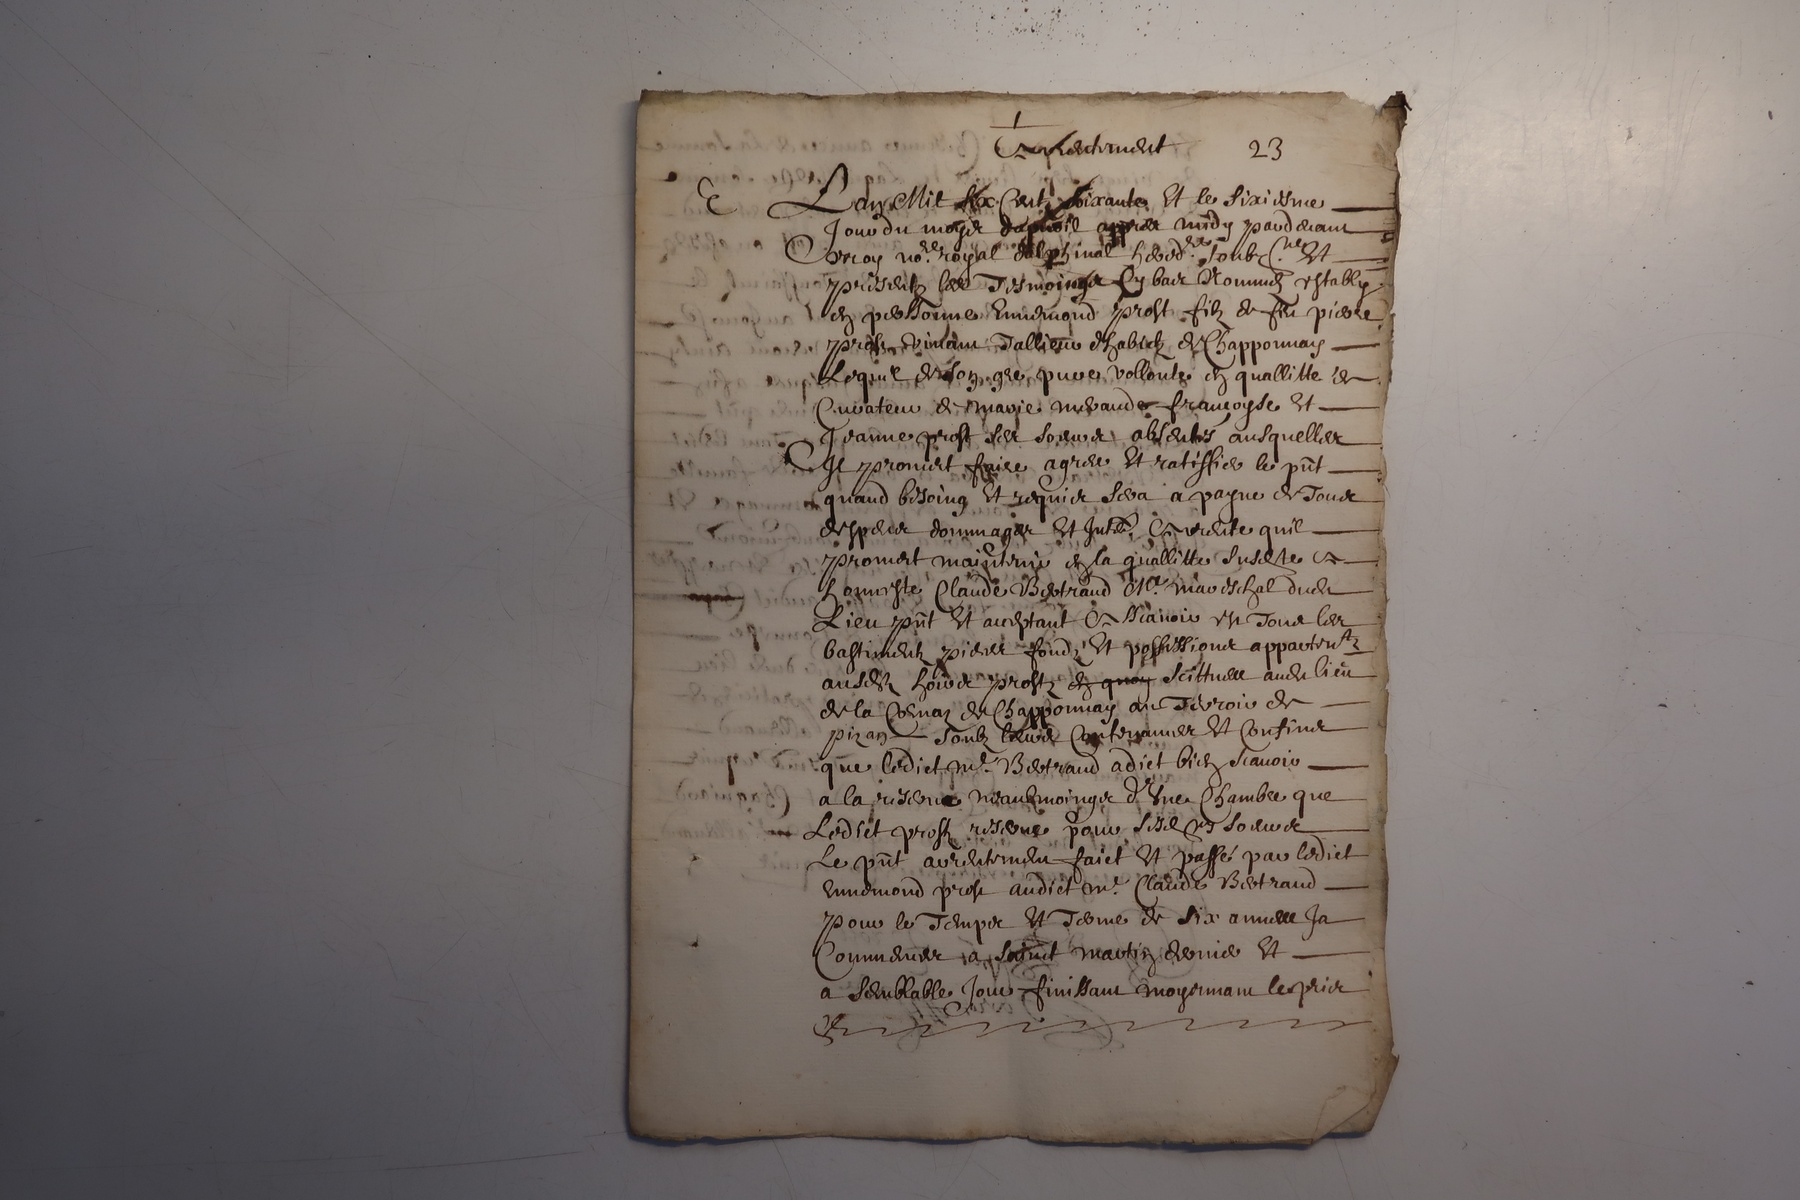 Arrentement 23
Lan Mil Six Cent Soixante Et le Sixiesme
Jour du moys dapvril appres midy pardevant
moy no.re royal dalphinal hered.re soub.ne Et
presentz les Tesmoings Cy bas Nommes estably
en personne Ennemond prost filz de feu pierre
prost vivant Tallieur dhabictz de Chapponnay
Lequel de son gre pure vollonte en quallitte de
Curateur de marie meraude francoyse Et
Jeanne prost ses soeurs absentes ausquelles
Il promect faire agreer Et ratiffier le pnt
quand besoing Et requis sera a payne de Tous
despens dommages Et Intz. Arrente quil
promect maintenir en la quallitte susdte A
honneste Claude Bertrand M.e mareschal dud
Lieu pnt Et acceptant A scavoir est Tous les
bastimentz pieces fondz Et possessions appartentz
ausdz hoirs prostz scittuees aud lieu
de la de Chapponnay au Terroir de
pizay soubz leurs Contenances Et Confins
que ledict m.e Bertrand a dict bien scavoir
a la reserve neantmoings d'Une Chambre que
Ledict prost reserve pour sesd soeurs
Le pnt arrentement faict Et passé par ledict
Ennemond prost audict m.e Claude Bertrand
pour le Temps Et Terme de six annees Ja
Commences a Sainct martin dernier Et
a semblable Jour finissant moyennant le prix